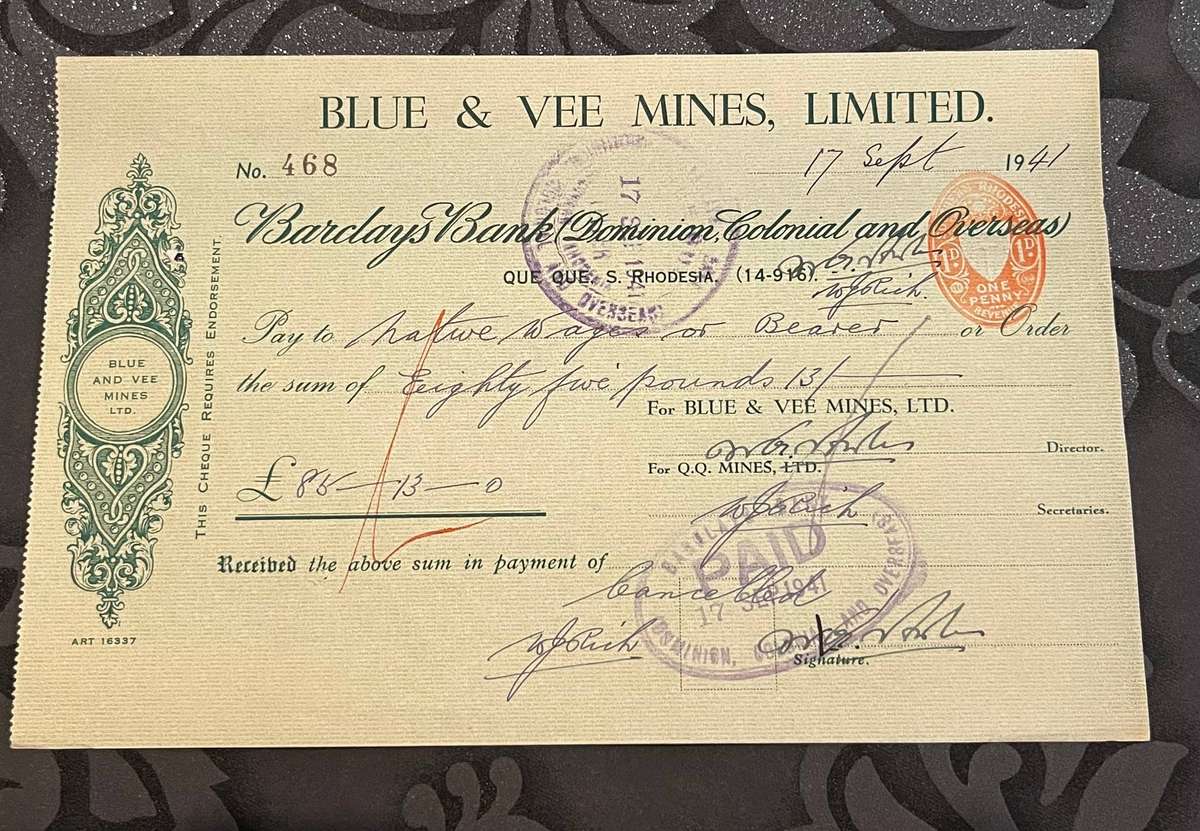 BLUE & VEE MINES, LIMITED.
No. 468
17 Sept 1941
Barclays Bank (Dominion, Colonial and Overseas)
QUE QUE, S. RHODESIA. (14-916).
WJRich.
RHODESIA
1D 1D
ONE
PENNY
REVENUE
17 SEP 1941
OVERSEAS)
Pay to native wages or Bearer or Order
the sum of Eighty five pounds 13/
For BLUE & VEE MINES, LTD.
Director.
For Q.Q. MINES, LTD.
WJRich
Secretaries.
£ 85 — 13 — 0
Received the above sum in payment of
Cancelled
WJRich
Signature.
BARCLAYS BANK
PAID
17 SEP 1941
(DOMINION, COLONIAL AND OVERSEAS)
BLUE
AND VEE
MINES
LTD.
THIS CHEQUE REQUIRES ENDORSEMENT.
ART 16337